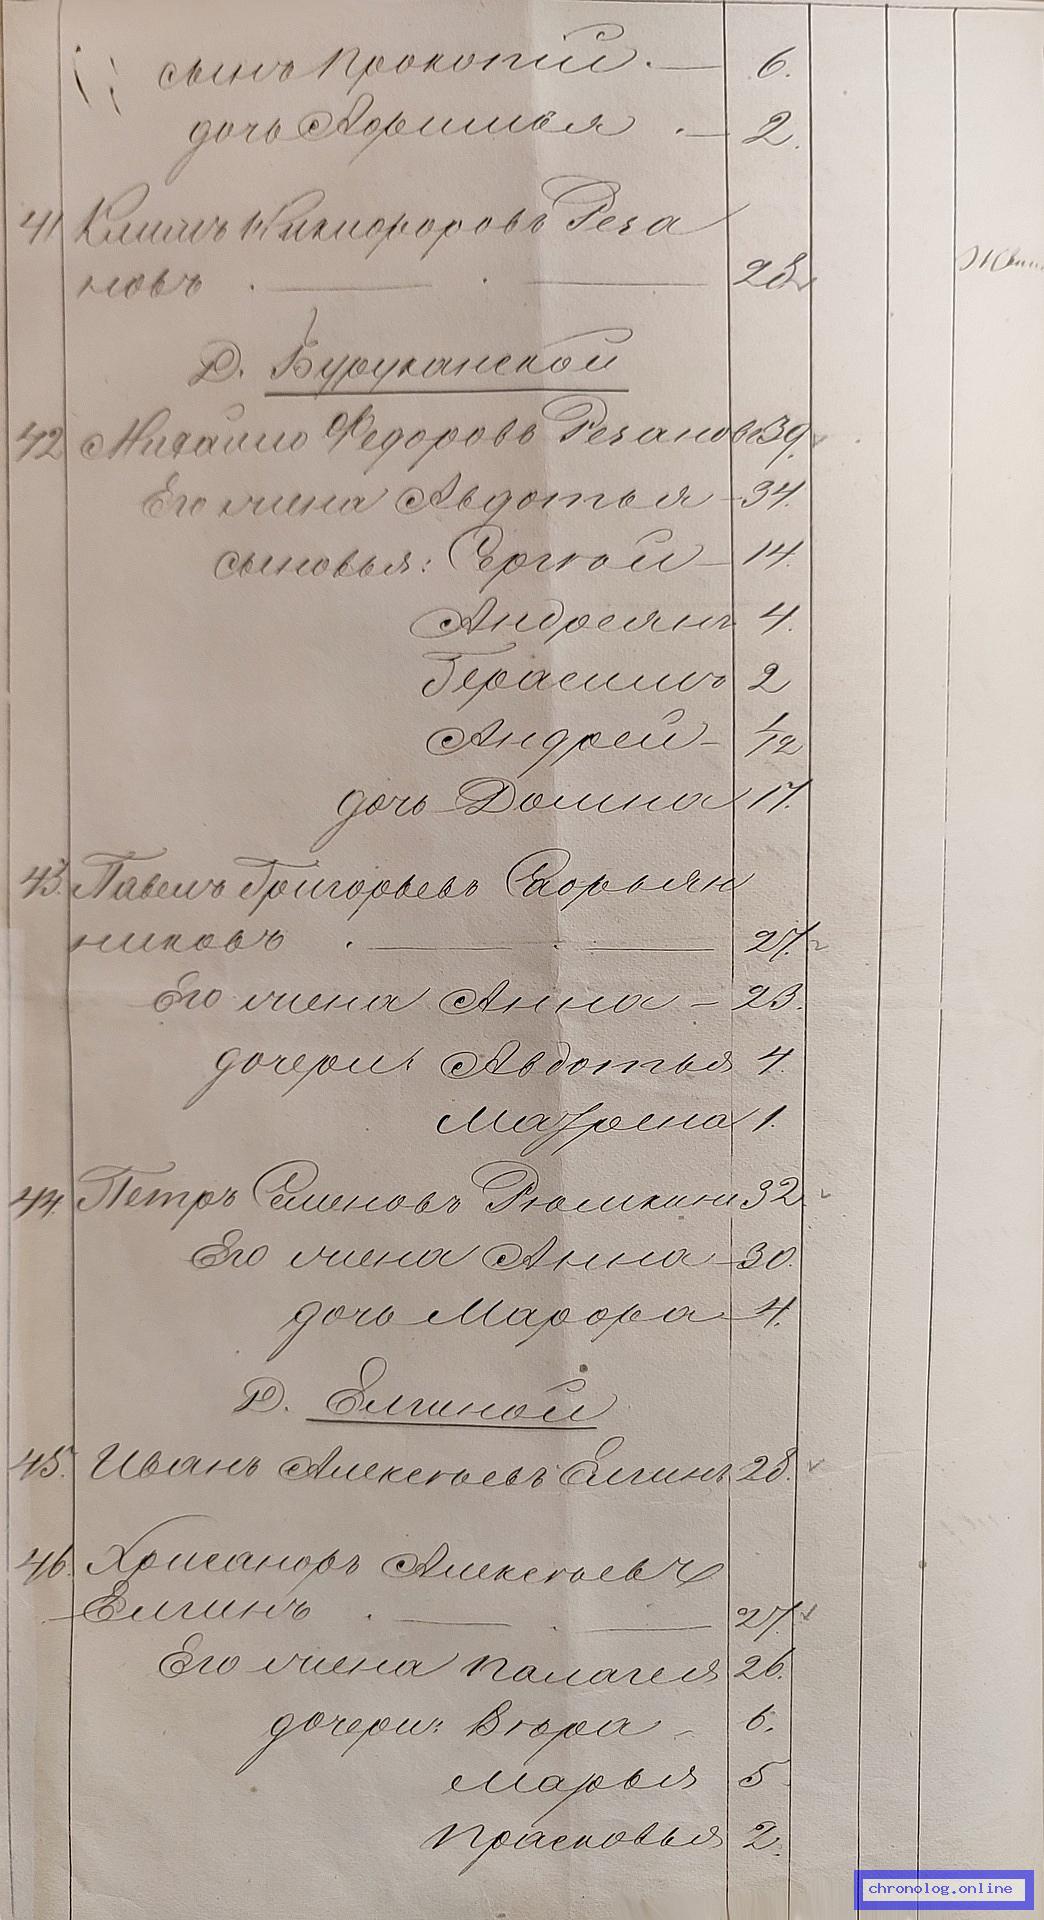 сынъ Прокопій. — 6.
дочь Аориннья . — 2.
41 Климъ Никифоровъ Реза
новъ . — . — 28
Д. Буруканской
42 Михайло Федоровъ Резановъ 39.
Его жена Авдотья — 34.
сыновья: Сергѣй — 14.
Андреянъ 4.
Герасимъ 2
Андрей — 1/12
дочь Домна 17.
43. Павелъ Григорьевъ Скорнян
никовъ . — . — 27.
Его жена Анна — 23.
дочери: Авдотья 4.
Матрена 1.
44. Петръ Семеновъ Рюмкинъ 32.
Его жена Анна — 30.
дочь Марфа — 4.
Д. Елгиной
45. Иванъ Алексѣевъ Елгинъ 28.
46. Хрисанфъ Алексѣевъ
Елгинъ . — . — 27.
Его жена Палагея 26.
дочери: Вѣра — 6.
Марья 5.
Прасковья 2.
chronolog.online